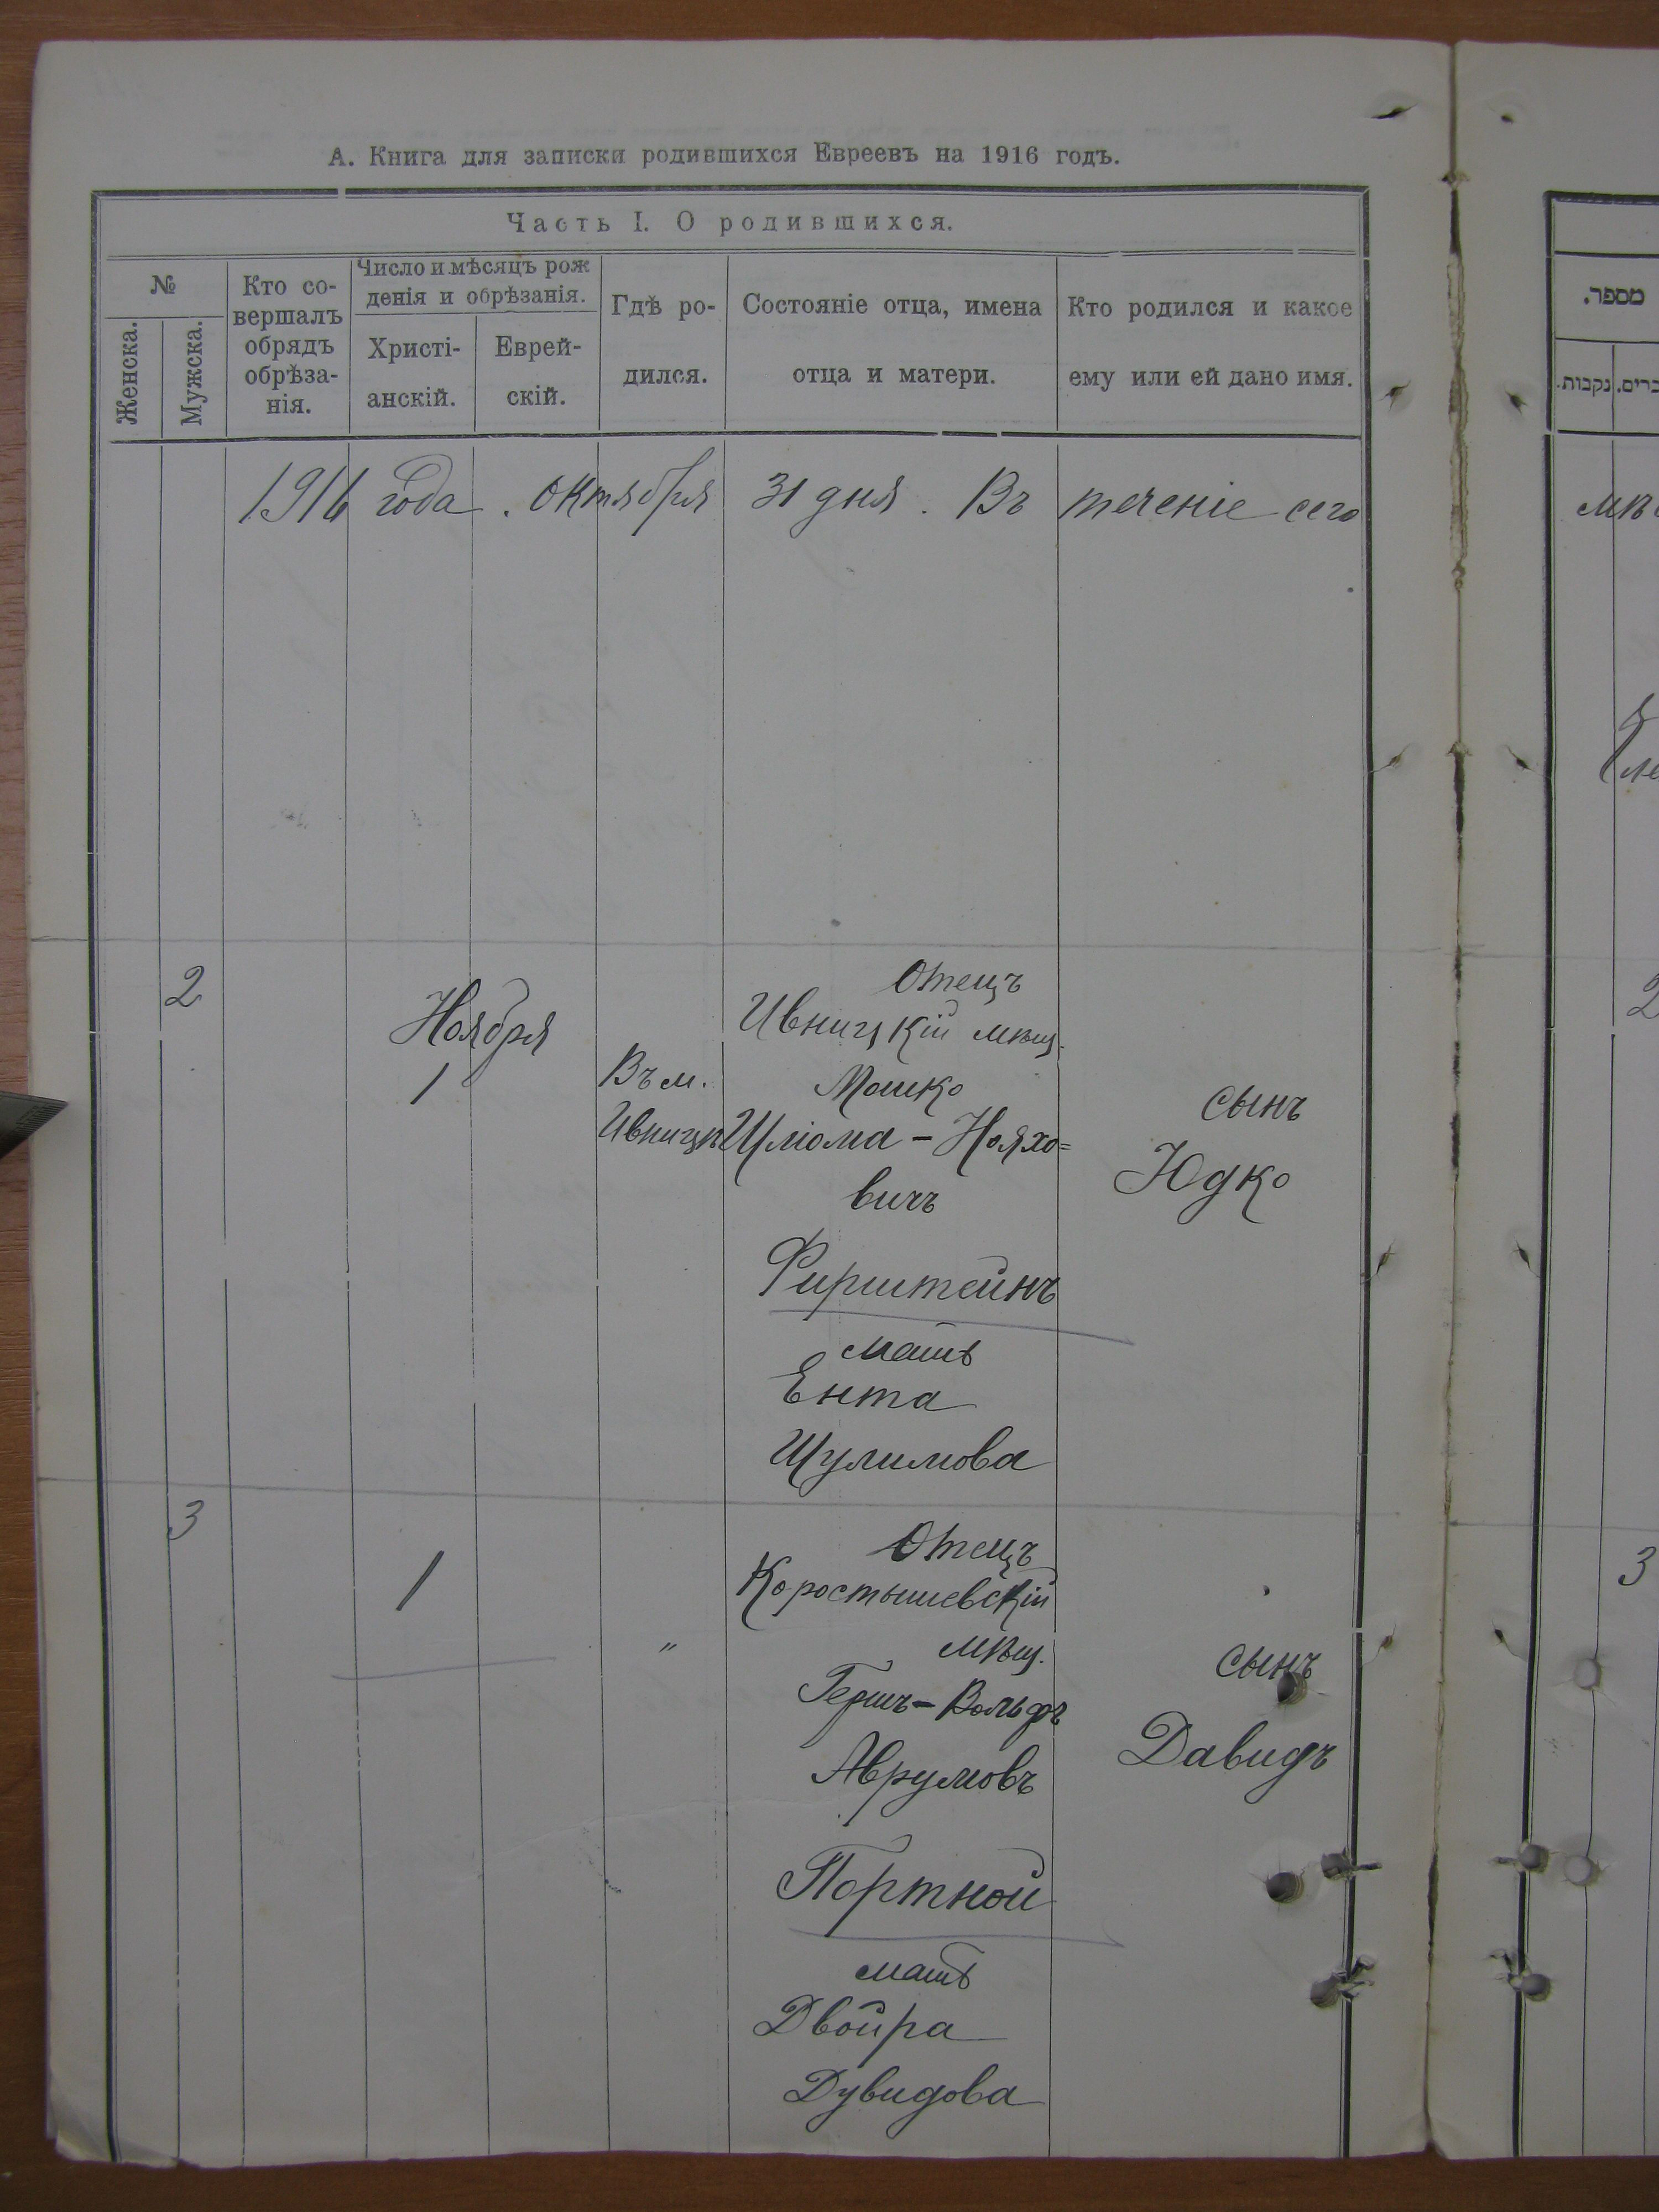 А. Книга для записки родившихся Евреевъ на 1916 годъ.
Часть I. О родившихся.
№
Женска.
Мужска.
Кто со-
вершалъ
обрядъ
обрѣза-
нія.
Число и мѣсяцъ рож
денія и обрѣзанія.
Христі-
анскій.
Еврей-
скій.
Гдѣ ро-
дился.
Состояніе отца, имена
отца и матери.
Кто родился и какое
ему или ей дано имя.
1916 года. Октября 31 дня. Въ теченіе сего
2
Ноября
1
Въ м.
Ивницѣ
Отецъ
Ивницкій мѣщ.
Мошко
Шліома-Нояхо=
вичъ
Фирштейнъ
мать
Ента
Шулимова
сынъ
Юдко
3
1
"
Отецъ
Коростышевскій
мѣщ.
Гершъ-Вольфъ
Аврумовъ
Портной
мать
Двойра
Дувидова
сынъ
Давидъ
מספר.
נקבות.
2
3